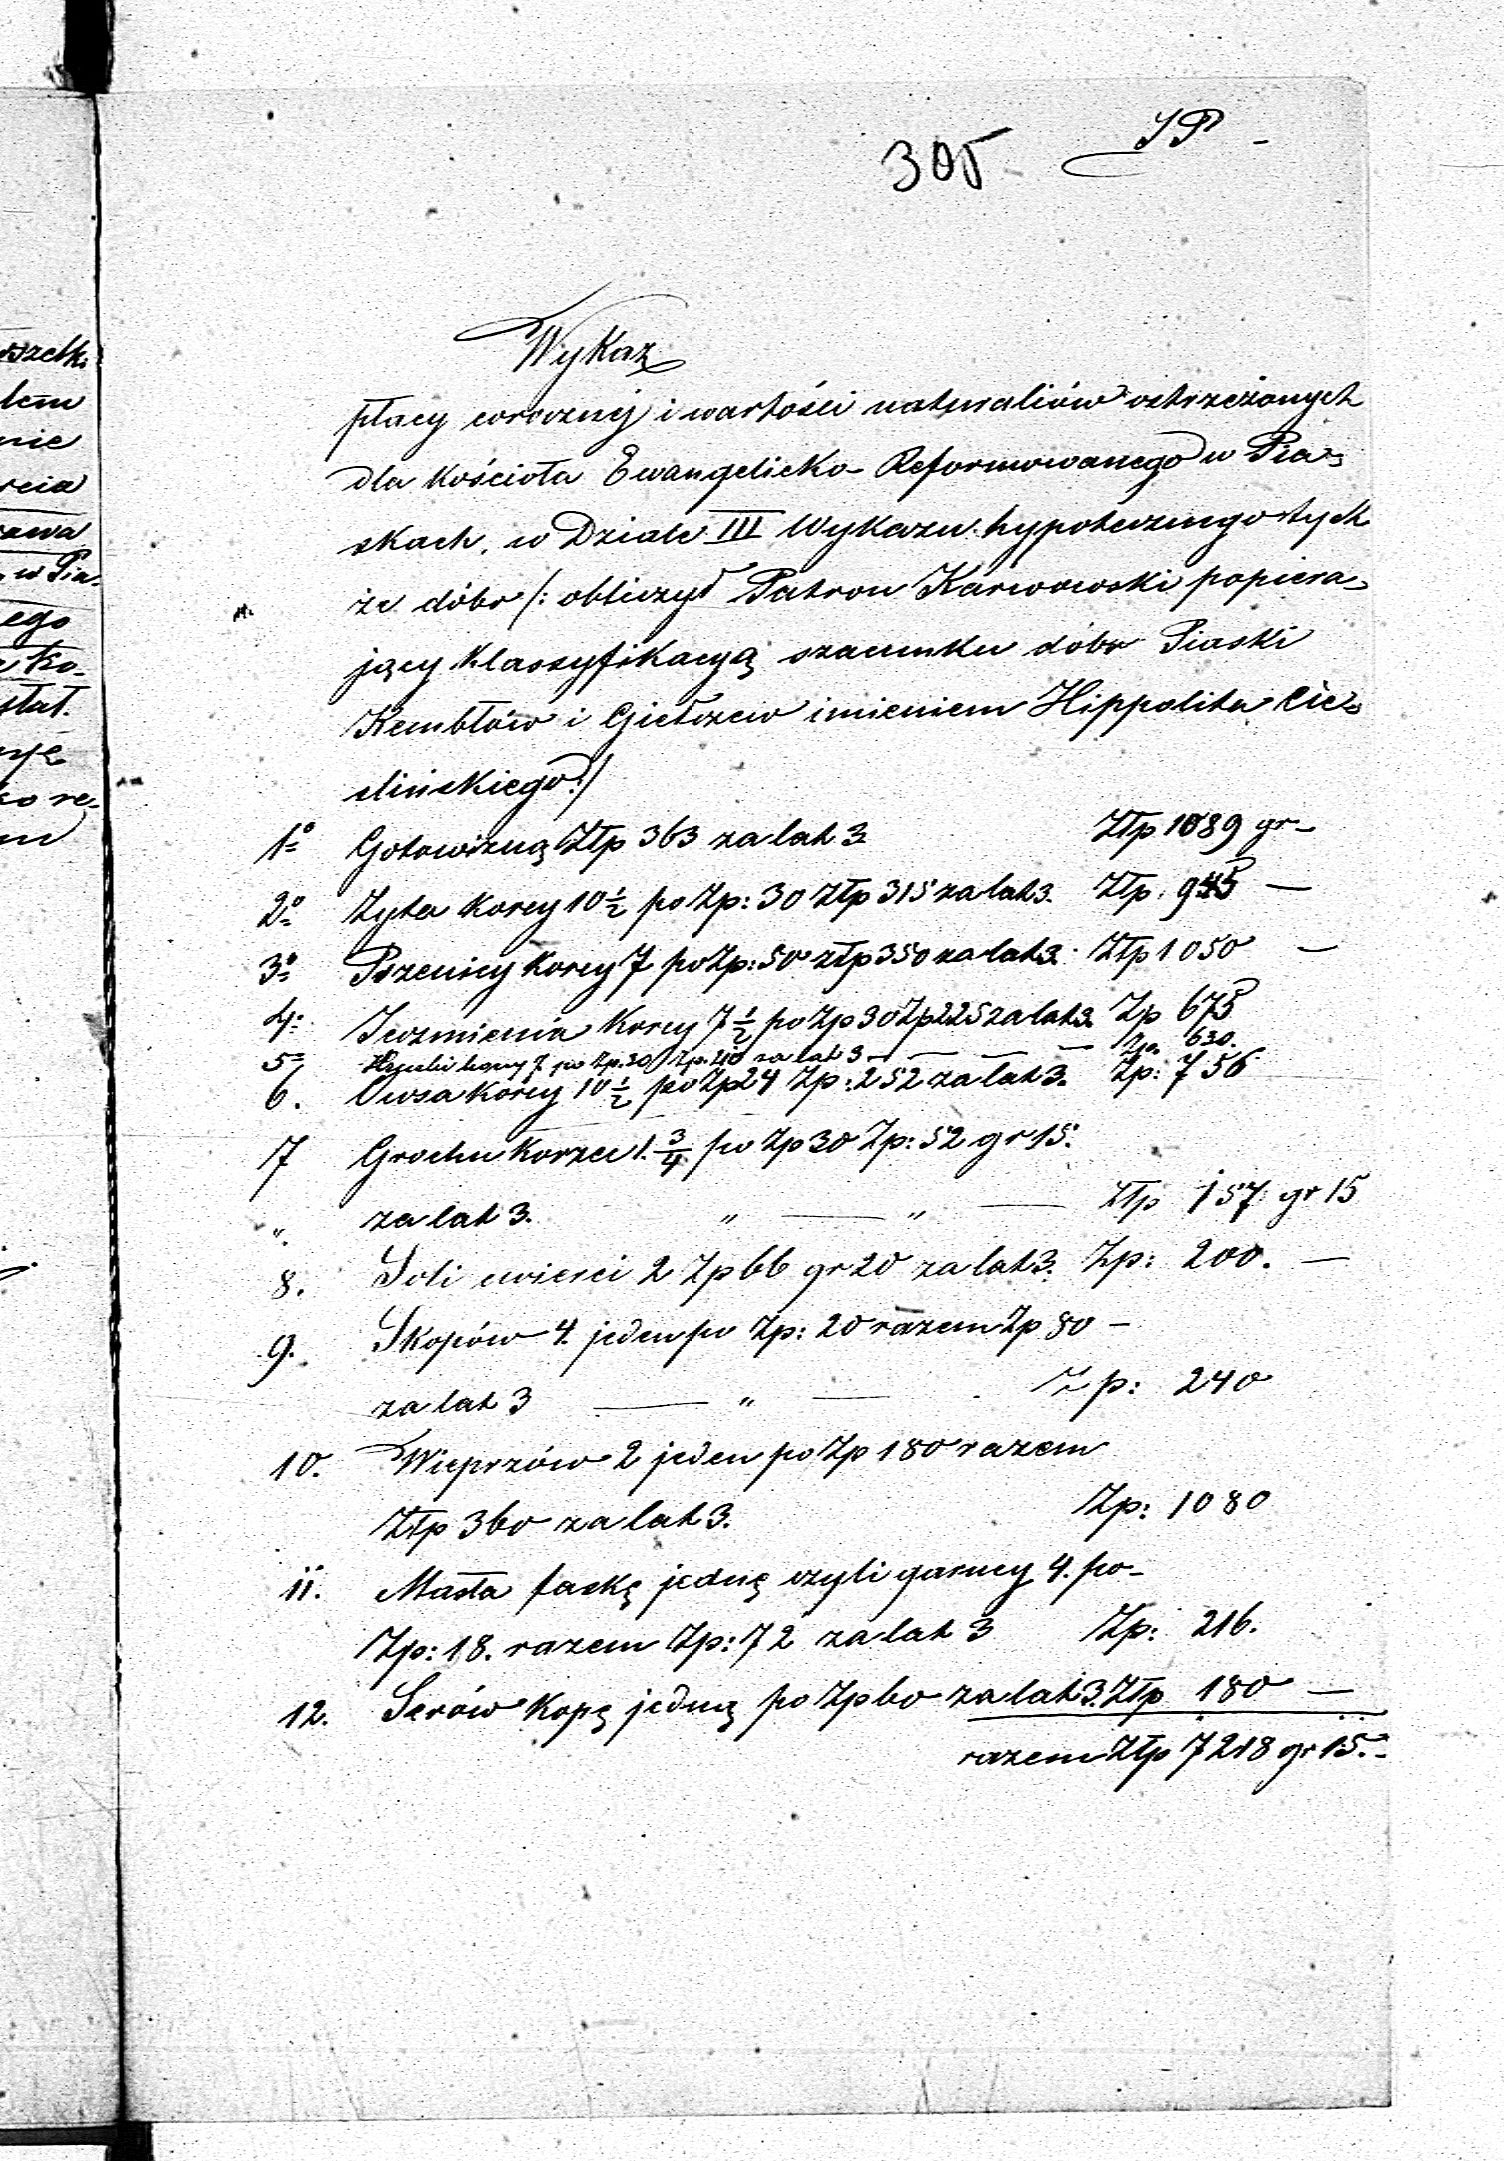 305 SP -
szetk
tem
nie
rcia
zawa
w Pia-
ego
ko-
stat.
ko re-
Wykaz
płacy corocznéj i wartości naturaliów ostrzeżonych
dla kościoła Ewangelicko-Reformowanego w Pia-
skach, w Dziale III Wykazu hypotecznego tych
że dóbr /: obliczył Patron Karwowski popiera-
jący klassyfikacyą szacunku dóbr Piaski
Kembłów i Giełczew imieniem Hippolita Cie-
slińskiego :/
1o Gotowizną Złp 363 za lat 3 Złp 1089 gr -
2o Żyta korcy 10 1/2 po Zp: 30 Złp 315 za lat 3. Złp. 945 —
3o Pszenicy korcy 7 po Zp: 50 złp 350 za lat 3. Złp 1050 —
4. Jęczmienia Korcy 7 1/2 po Zp 30 Zp 225 za lat 3. Zp 675
5 korcy 7. po Zp. 30 Zp. 210 za lat 3 — — — — Zp. 630.
6. Owsa korcy 10 1/2 po Zp 24 Zp: 252 za lat 3. Zp: 756
7 Grochu korzec 1. 3/4 po Zp 30 Zp: 52 gr 15.
". za lat 3. " — " — Złp 157 gr 15
8. Soli cwierci 2 Zp 66 gr 20 za lat 3. Zp: 200. —
9. Skopów 4. jeden po Zp: 20 razem Zp 80 -
za lat 3 — " — Zp: 240
10. Wieprzów 2 jeden po Zp 180 razem
Złp 360 za lat 3. Zp: 1080
11. Masła faskę jednę czyli garncy 4. po-
Zp: 18. razem Zp: 72 za lat 3 Zp: 216.
12. Serów kopę jedną po Zp 60 za lat 3. Złp 180 —
razem Złp 7218 gr 15.-